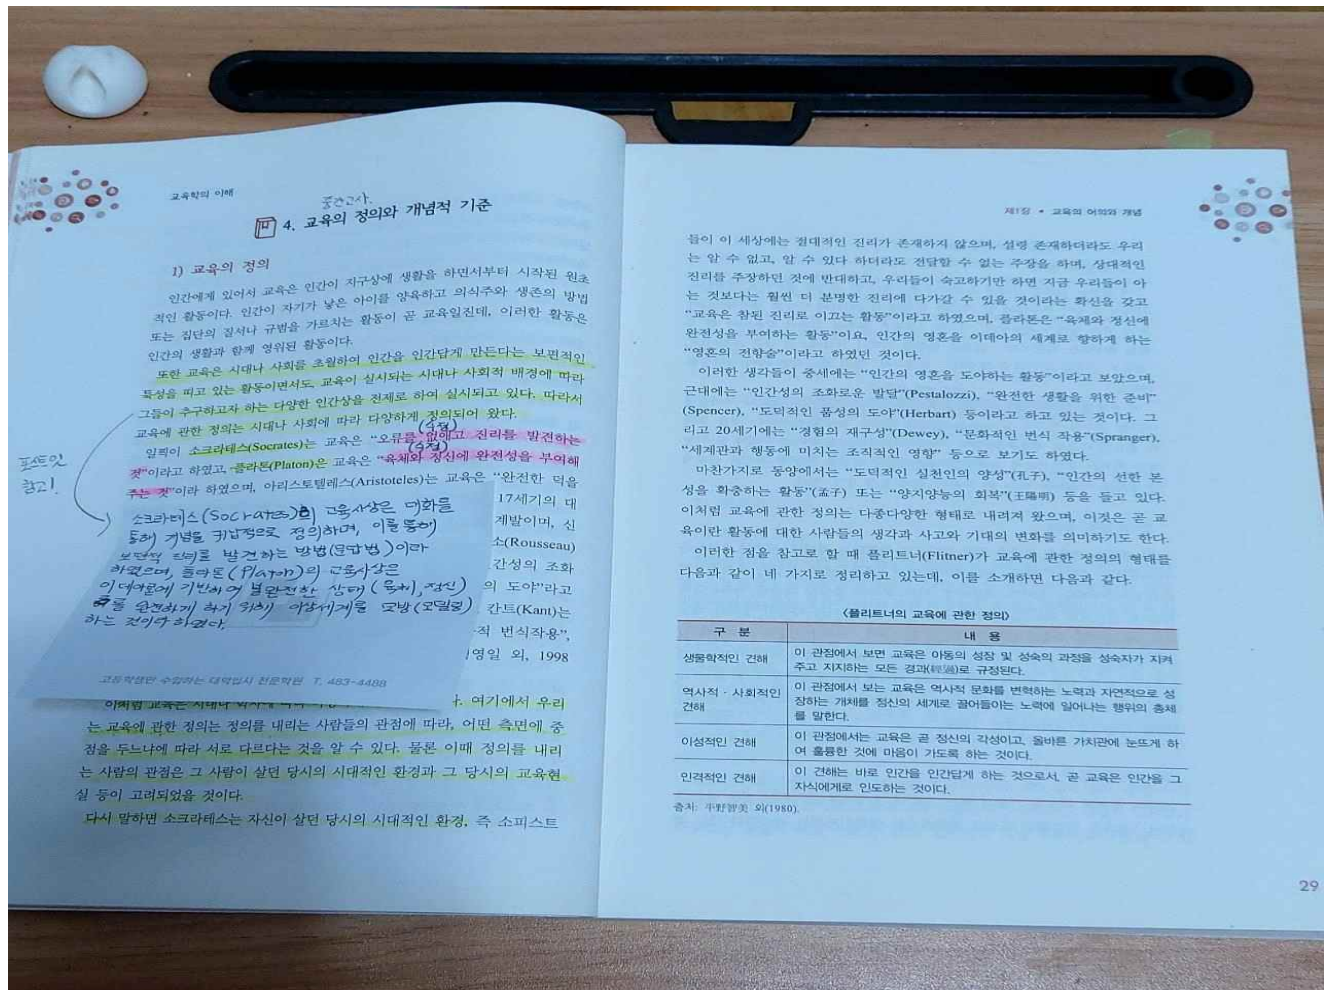 교육학의 이해
중간고사.
4. 교육의 정의와 개념적 기준
1) 교육의 정의
인간에게 있어서 교육은 인간이 지구상에 생활을 하면서부터 시작된 원초
적인 활동이다. 인간이 자기가 낳은 아이를 양육하고 의식주와 생존의 방법
또는 집단의 질서나 규범을 가르치는 활동이 곧 교육일진데, 이러한 활동은
인간의 생활과 함께 영위된 활동이다.
또한 교육은 시대나 사회를 초월하여 인간을 인간답게 만든다는 보편적인
특성을 띠고 있는 활동이면서도, 교육이 실시되는 시대나 사회적 배경에 따라
그들이 추구하고자 하는 다양한 인간상을 전제로 하여 실시되고 있다. 따라서
교육에 관한 정의는 시대나 사회에 따라 다양하게 정의되어 왔다.
(4점)
일찍이 소크라테스(Socrates)는 교육은 "오류를 없애고 진리를 발견하는
(4점)
것"이라고 하였고, 플라톤(Platon)은 교육은 "육체와 정신에 완전성을 부여해
주는 것"이라 하였으며, 아리스토텔레스(Aristoteles)는 교육은 "완전한 덕을
17세기의 대
계발이며, 신
소(Rousseau)
간성의 조화
의 도야"라고
칸트(Kant)는
적 번식작용",
영일 외, 1998
포스트잇
참고!
소크라테스(Socrates)의 교육사상은 대화를
통해 개념을 귀납적으로 정의하며, 이를 통해
보편적 진리를 발견하는 방법(문답법)이라
하였으며, 플라톤(Platon)의 교육사상은
이데아론에 기반하여 불완전한 상태(육체, 정신)
를 완전하게 하기 위해 이상세계를 모방(모델링)
하는 것이다 하였다.
고등학생만 수업하는 대학입시 전문학원 T. 483-4488
여기에서 우리
는 교육에 관한 정의는 정의를 내리는 사람들의 관점에 따라, 어떤 측면에 중
점을 두느냐에 따라 서로 다르다는 것을 알 수 있다. 물론 이때 정의를 내리
는 사람의 관점은 그 사람이 살던 당시의 시대적인 환경과 그 당시의 교육현
실 등이 고려되었을 것이다.
다시 말하면 소크라테스는 자신이 살던 당시의 시대적인 환경, 즉 소피스트
제1장 • 교육의 어의와 개념
들이 이 세상에는 절대적인 진리가 존재하지 않으며, 설령 존재하더라도 우리
는 알 수 없고, 알 수 있다 하더라도 전달할 수 없는 주장을 하며, 상대적인
진리를 주장하던 것에 반대하고, 우리들이 숙고하기만 하면 지금 우리들이 아
는 것보다는 훨씬 더 분명한 진리에 다가갈 수 있을 것이라는 확신을 갖고
"교육은 참된 진리로 이끄는 활동"이라고 하였으며, 플라톤은 "육체와 정신에
완전성을 부여하는 활동"이요, 인간의 영혼을 이데아의 세계로 향하게 하는
"영혼의 전향술"이라고 하였던 것이다.
이러한 생각들이 중세에는 "인간의 영혼을 도야하는 활동"이라고 보았으며,
근대에는 "인간성의 조화로운 발달"(Pestalozzi), "완전한 생활을 위한 준비"
(Spencer), "도덕적인 품성의 도야"(Herbart) 등이라고 하고 있는 것이다. 그
리고 20세기에는 "경험의 재구성"(Dewey), "문화적인 번식 작용"(Spranger),
"세계관과 행동에 미치는 조직적인 영향" 등으로 보기도 하였다.
마찬가지로 동양에서는 "도덕적인 실천인의 양성"(孔子), "인간의 선한 본
성을 확충하는 활동"(孟子) 또는 "양지양능의 회복"(王陽明) 등을 들고 있다.
이처럼 교육에 관한 정의는 다종다양한 형태로 내려져 왔으며, 이것은 곧 교
육이란 활동에 대한 사람들의 생각과 사고와 기대의 변화를 의미하기도 한다.
이러한 점을 참고로 할 때 플리트너(Flitner)가 교육에 관한 정의의 형태를
다음과 같이 네 가지로 정리하고 있는데, 이를 소개하면 다음과 같다.
〈플리트너의 교육에 관한 정의〉
구 분 내 용
생물학적인 견해 이 관점에서 보면 교육은 아동의 성장 및 성숙의 과정을 성숙자가 지켜
주고 지지하는 모든 경과(經過)로 규정된다.
역사적·사회적인 견해 이 관점에서 보는 교육은 역사적 문화를 변혁하는 노력과 자연적으로 성
장하는 개체를 정신의 세계로 끌어들이는 노력에 일어나는 행위의 총체
를 말한다.
이성적인 견해 이 관점에서는 교육은 곧 정신의 각성이고, 올바른 가치관에 눈뜨게 하
여 훌륭한 것에 마음이 가도록 하는 것이다.
인격적인 견해 이 견해는 바로 인간을 인간답게 하는 것으로서, 곧 교육은 인간을 그
자식에게로 인도하는 것이다.
출처: 平野智美 외(1980).
29